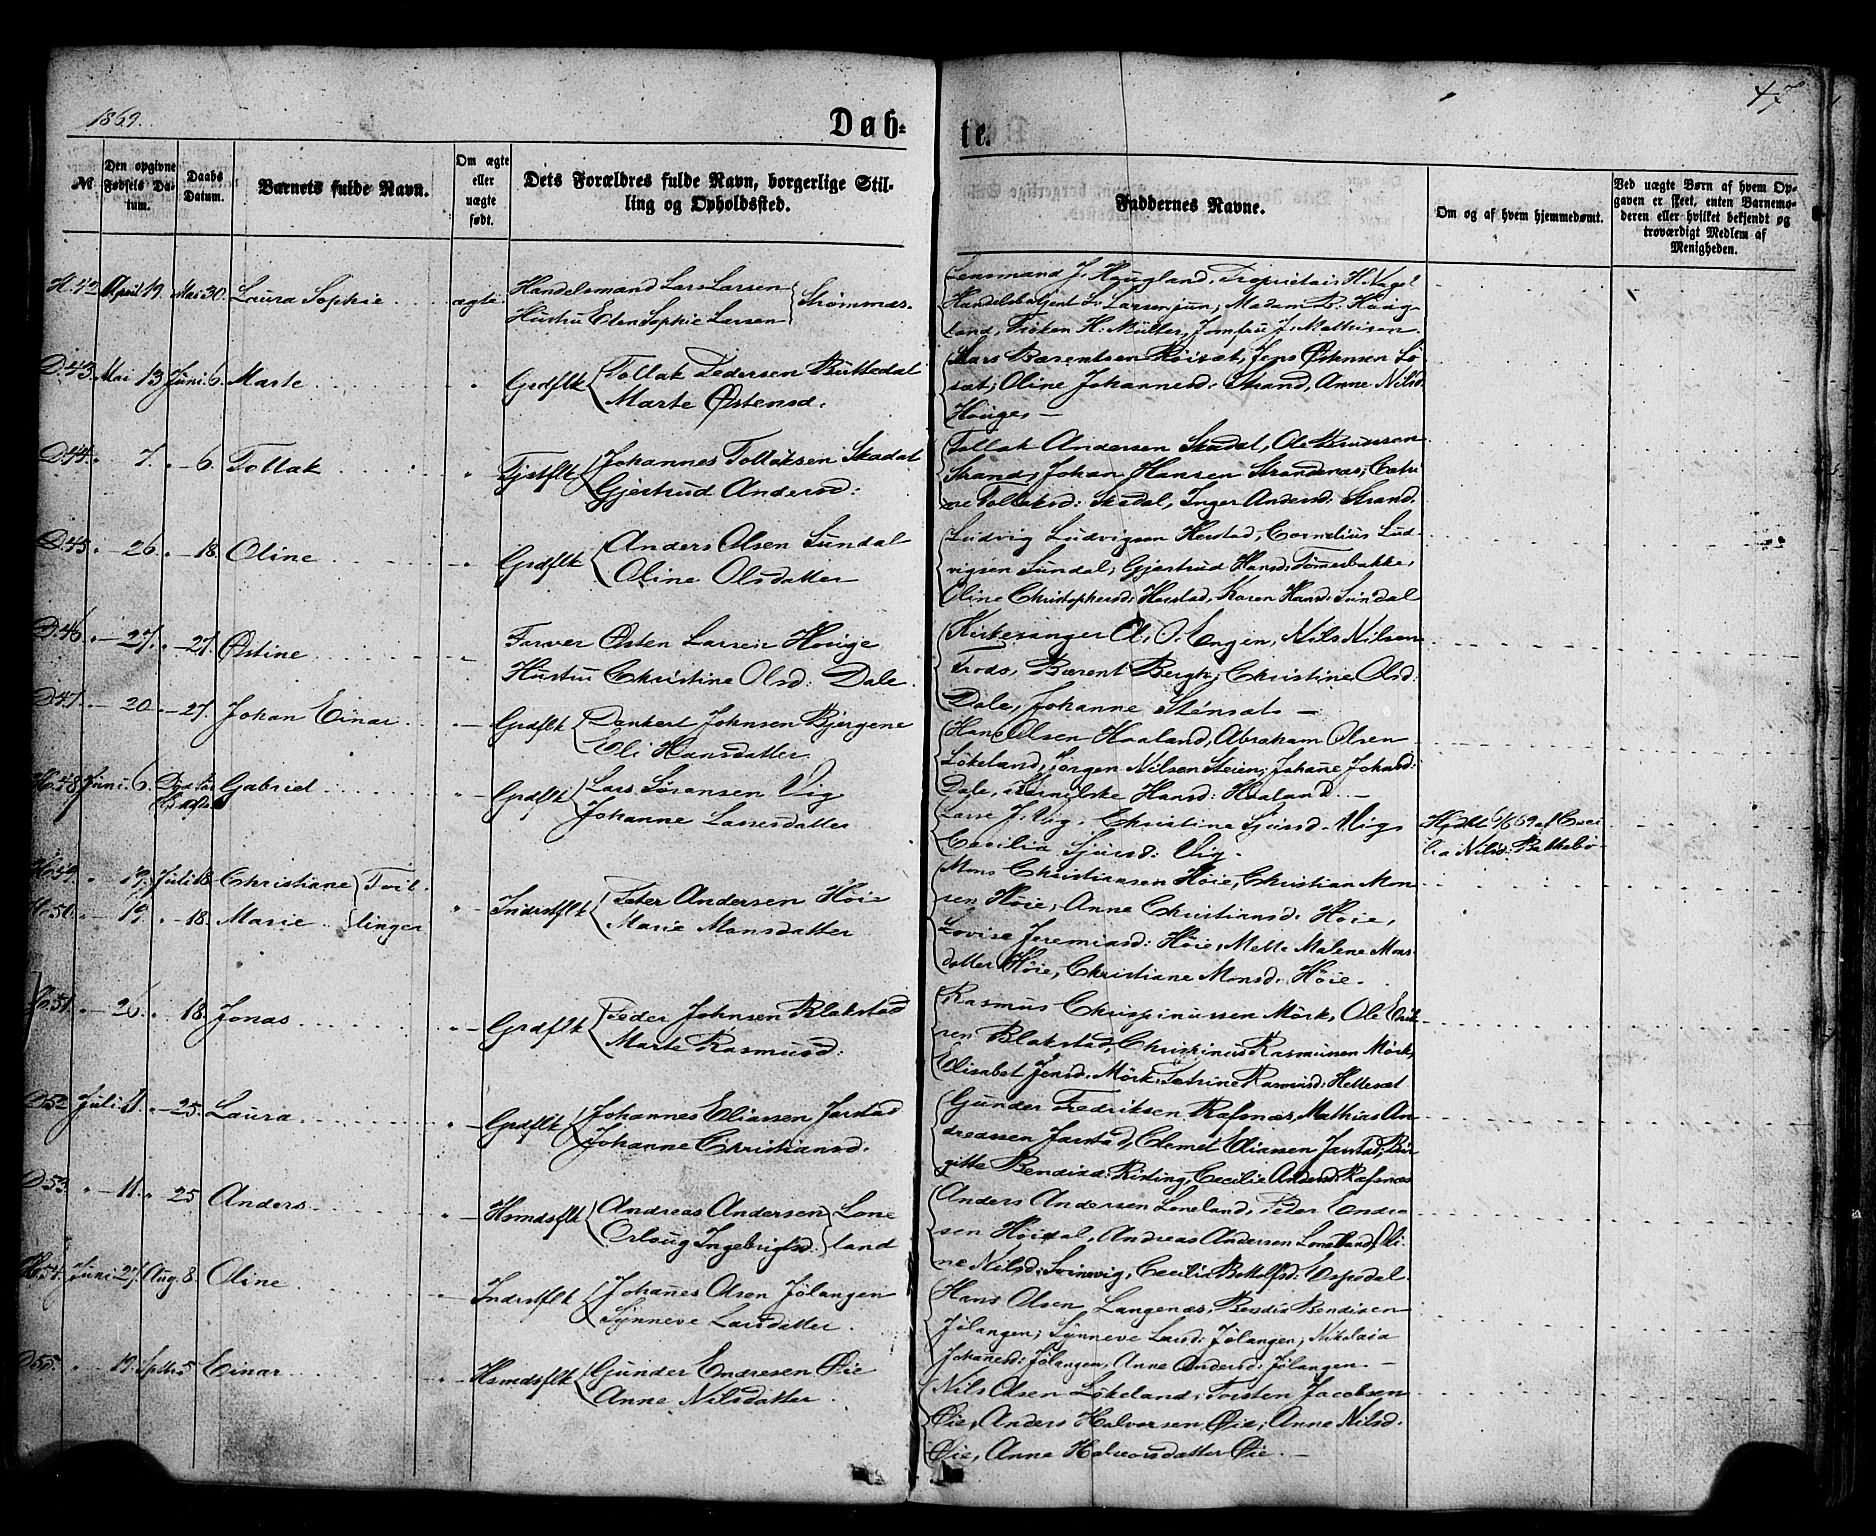 1869.
Døb-
te.
47
№
Den opgivne Fødsels Da-tum.
Daabs Datum.
Barnets fulde Navn.
Om ægte eller uægte født.
Dets Forældres fulde Navn, borgerlige Stil-
ling og Opholdssted.
Faddernes Navne.
Om og af hvem hjemmedøbt.
Ved uægte Børn af hvem Op-
gaven er skeet, enten Barnemo-
deren eller hvilket bekjendt og
troværdigt Medlem af
Menigheden.
H. 42 April 19. Mai 30. Laura Sophie ægte Handelsmand Lars Larsen
Hustru Elen Sophie Larsen Strømnæs.
Lensmand J. Hougland, Proprietair H.
Handelsbetjent L. Larsen jun, Madam B. Houg-
land, Frøken H. Müller, Jomfru J. Mathisen.
D. 43. Mai 13 Juni 6. Marte " Grdflk Tollak Pedersen Buttedal
Marte Østensd.
Lars Bærentsen Röisæt, Jens Østensen Lö-
sæt, Oline Johannesd: Strand, Anne Nilsd:
Houge. —
D. 44. " 7. " 6. Tollak " Tjstflk Johannes Tollaksen Skadal
Gjertrud Andersd:
Tollak Andersen Skadal, Ole
Strand, Johan Hansen Strandenæs, Cathri-
ne Tollaksd: Skadal, Inger Andersd: Strand.
D. 45 " 26. " 18. Oline " Grdflk Anders Olsen Sundal
Oline Olsdatter
Ludvig Ludvigsen Herstad, Cornelius Lud-
vigsen Sundal, Gjertrud Hansd: Tömerbakke,
Oline Christophersd: Herstad, Karen Hansd: Sundal
D. 46 " 27. " 27. Østine " Farver Østen Larsen Houge
Hustru Christine Olsd: Dale.
Kirkesanger A. O. Engen, Nils Nilsen
Trods, Bærent Bergh, Christine Olsd:
Dale, Johanne Stensæt —
D. 47. " 20. " 27. Johan Einar " Grdflk Dankert Johnsen Bjergene
Eli Hansdatter
Hans Olsen Haaland, Abraham Olsen
Lökeland, Jörgen Nilsen Steien, Johane Johansd:
Dale, Hansd: Haaland. —
H. 48 Juni 6. Død før Daaben Gabriel " Grdflk Lars Sörensen Vig
Johanne Larsdatter
Lasse J. Vig, Christine Sjursd: Vig,
Cecilia Sjursd: Vig.
Hjdbt 6/6 69 af Ceci-
lia Nilsd: Bakkebö
H. 49. " 19. Juli 18. Christiane Tvil-
H. 50. " 19. " 18. Marie linger " Indrstflk Peter Andersen Höie
Marie Monsdatter
Mons Christiansen Höie, Christian Mon-
sen Höie, Anne Christiansd: Höie,
Lovise Jeremiasd: Höie, Mette Malene Mons-
datter Höie, Christiane Monsd: Höie.
H. 51. " 26. " 18. Jonas " Grdflk Peder Johnsen Blakstad
Marte Rasmusd:
Rasmus Chrispinussen Mörk, Ole Erik-
sen Blakstad, Chrispinus Rasmussen Mörk,
Elisabet Jensd: Mörk, Petrine Rasmusd: Hellesæt
D. 52 Juli 11. " 25. Laura " Grdflk Johannes Eliassen Jarstad
Johanne Christiansd.
Gunder Fredriksen Rafsnæs, Mathias An-
dreassen Jarstad, Clemet Eliassen Jarstad, Bir-
gitte Bendixd: Risting, Cecilie Andersd: Rafsnæs
D. 53. " 11. " 25 Anders " Hsmdsflk Andreas Andersen
Orloug Ingebrigtsd: Lone
land
Anders Andersen Loneland, Peder Endre-
sen Höidal, Andreas Andersen Loneland, Oli-
ne Nilsd: Svinevig, Cecilie Bottolfsd: Espedal.
H. 54. Juni 27. Aug. 8. Oline " Indrstflk Johanes Olsen Jölangen
Synneve Larsdatter.
Hans Olsen Langenæs, Bendix Bendixen
Jölangen, Synneve Larsd: Jölangen, Nikolaia
Johanesd: Jölangen, Anne Andersd: Jölangen. —
D. 55. " 19. Septbr 5 Einar " Hsmdsflk Gunder Endresen Øie
Anne Nilsdatter.
Nils Olsen Lökeland, Torsten Jacobsen
Øie, Anders Halvorsen Øie, Anne Nilsd:
Øie, Anne Halvorsdatter Øie. —